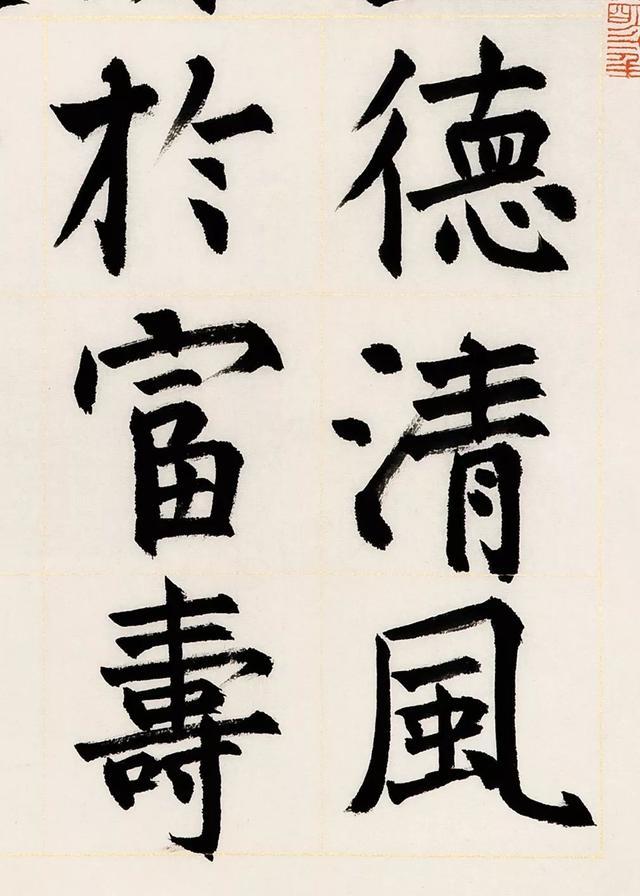 德清風
於富壽